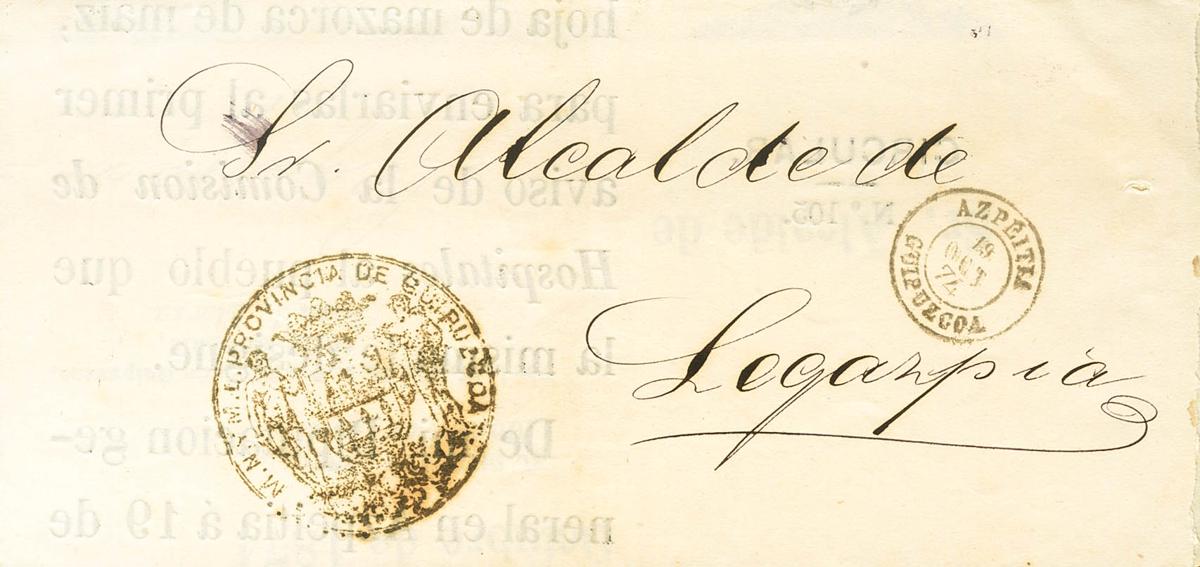 hoja de mazorca de maiz,
para enviarlas al primer
aviso de la Comision de
Hospitales al pueblo que
la misma designe.
De mi Diputacion ge-
neral en Azpeitia á 19 de
CIRCULAR.
N.º 105.
Sr. Alcalde de
Legazpia
AZPEITIA
19
OCT
74
GUIPUZCOA
M.N. Y M.L. PROVINCIA DE GUIPUZCOA